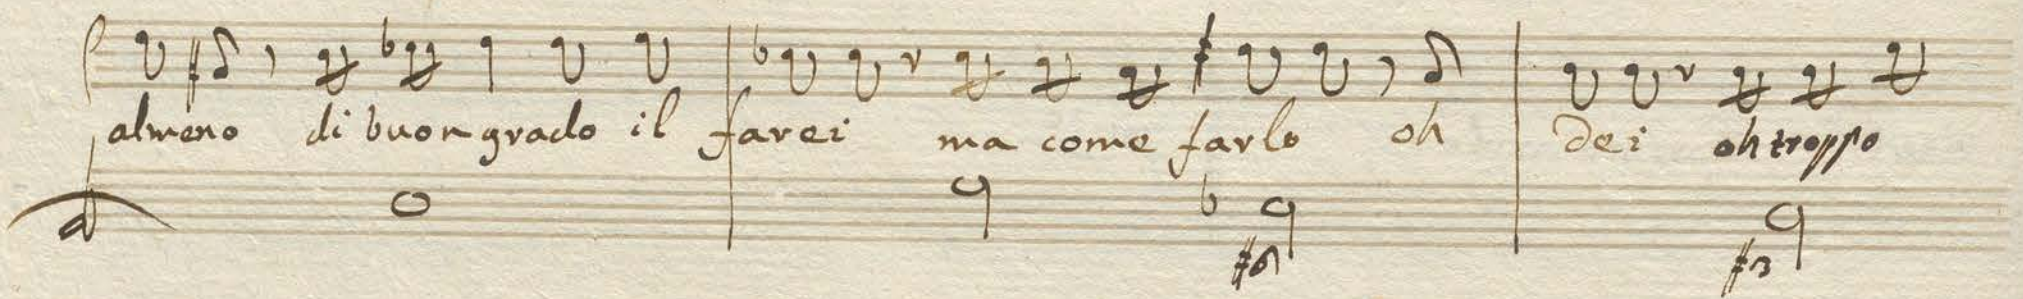 almeno di buon grado il farei ma come farlo oh dei oh troppo
#6
#3